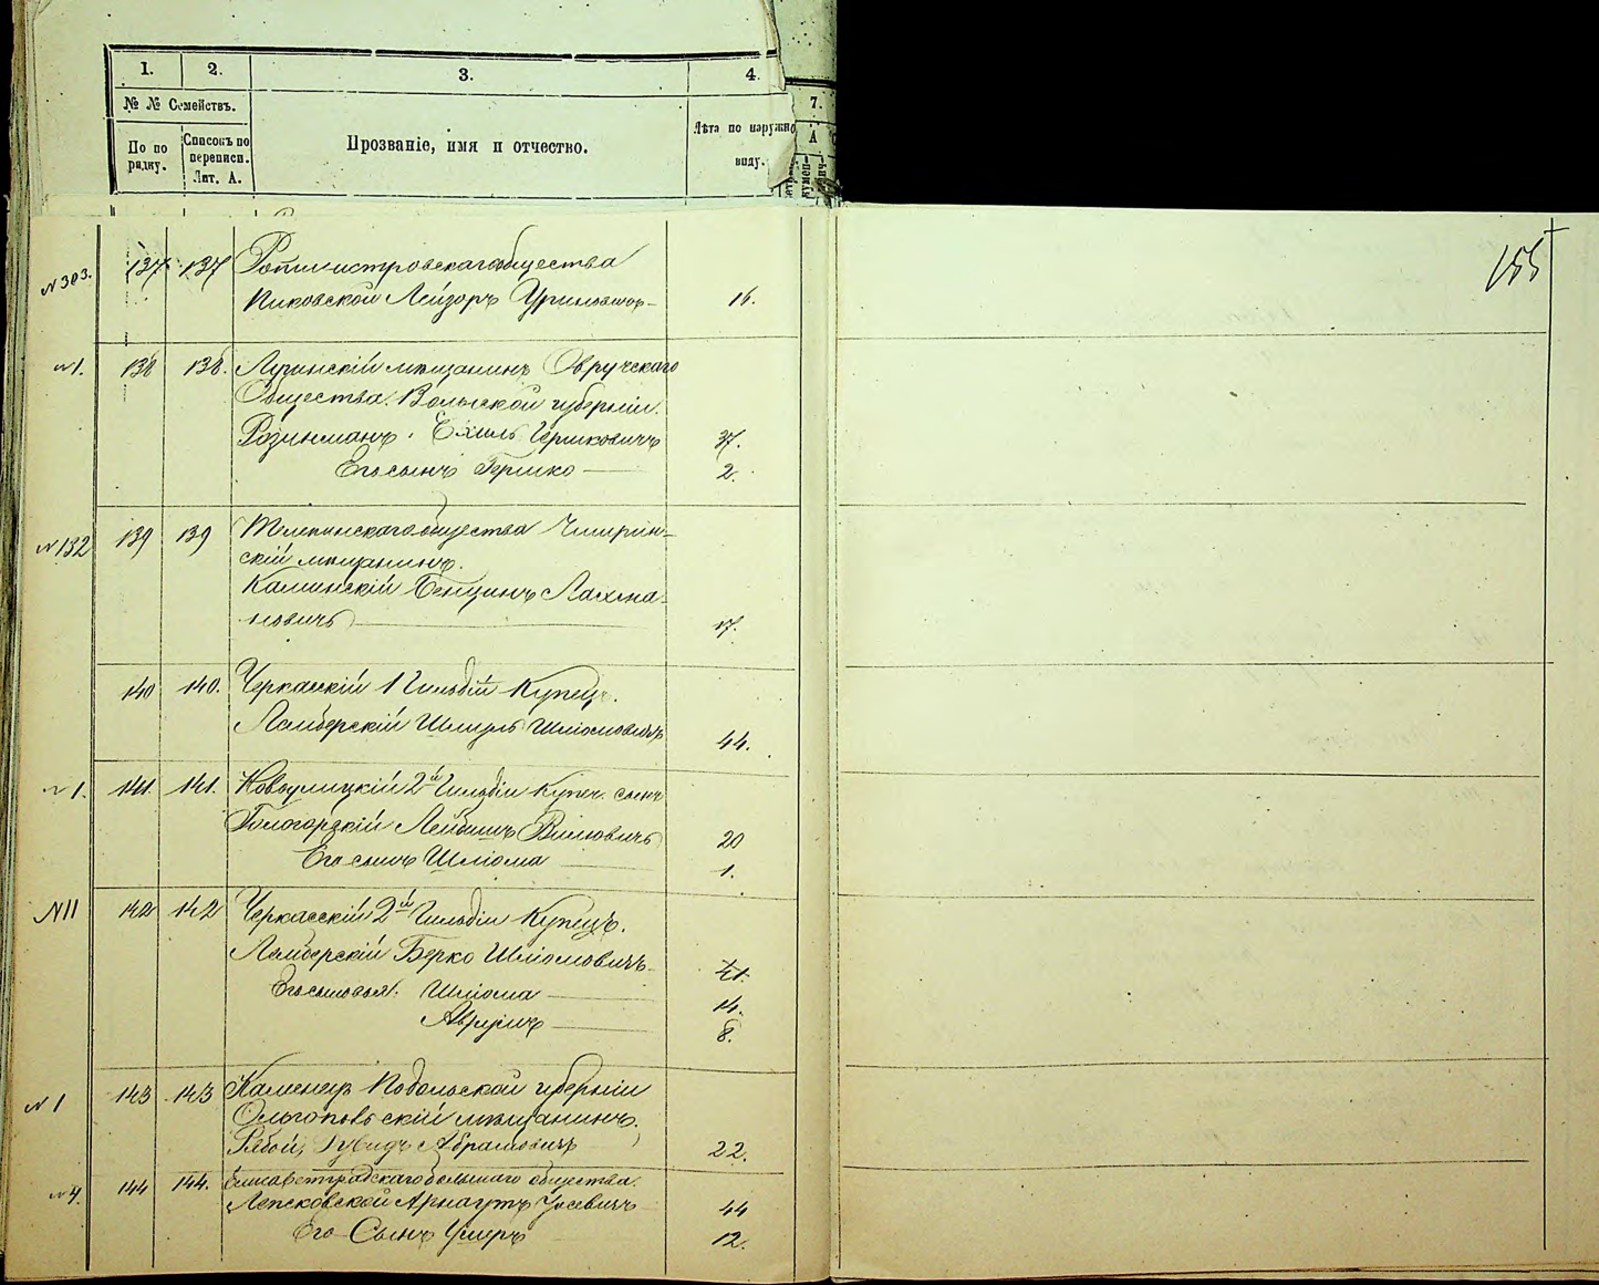 1. 2. 3. 4.
№ № Семействъ.
7.
По по
рядку.
Списокъ по
переписи.
Лит. А.
Прозваніе, имя и отчество.
Лѣта по наружно
виду.
А
155
N 303. 137 137 Ротмистровскаго общества
Пиковской Лейзоръ Уриновичъ 16.
N 1. 138 138. Лугинскій мѣщанинъ Овручскаго
Общества. Волынской губерніи.
Розинманъ. Ехиль Гершковичъ 37.
Его сынъ Гершко 2.
N 132 139 139 общества Чигирин-
скій мѣщанинъ.
Каминскій Бенціонъ Нахма-
новичъ 17.
140 140. Черкасскій 1 Гильдіи Купецъ.
Ламберскій Шмуль Шліомовичъ 44.
N 1. 141. 141. 2й Гильдіи Купеч. сынъ
Гологорскій Лейбишъ 20
Его сынъ Шліома 1.
N 11 142 142 Черкасскій 2й Гильдіи Купецъ.
Ламберскій Берко Шліомовичъ 41.
Его сыновья: Шліома 14.
Аврумъ 8.
N 1 143 143 Каменецъ Подольской губерніи
Ольгопольскій мѣщанинъ.
Рябой, Дувидъ Абрамовичъ 22.
N 4. 144 144. Елисаветградскаго общества.
Арнаутъ 44
Его Сынъ 12.